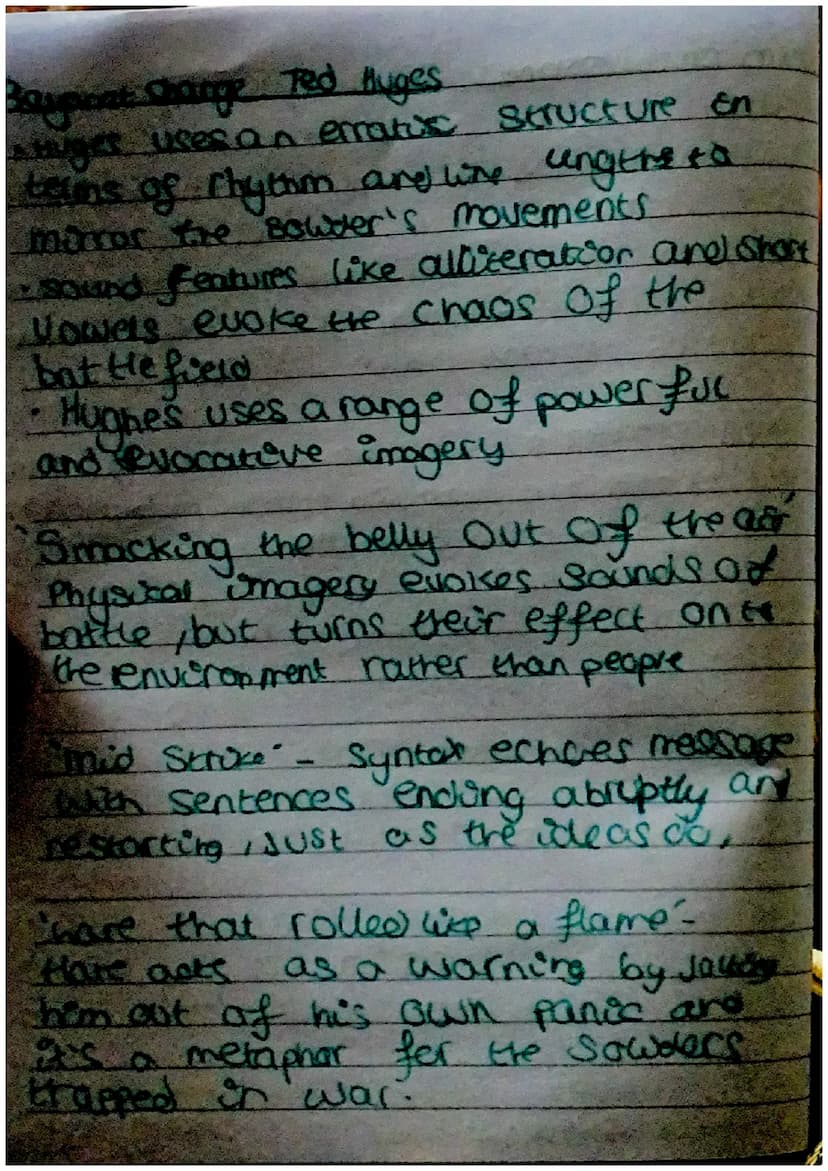 Bayonet Charge Ted Huges
• Huges uses an erratic structure in
terms of rhythm and line lengths to
mirror the Soldier's movements
• sound features like alliteration and short
vowels evoke the chaos of the
battlefield
• Hughes uses a range of powerful
and evocative imagery
'Smacking the belly out of the air'
Physical imagery evokes sounds of
battle, but turns their effect on
the environment rather than people
'mid Strike' - Syntax echoes message
with sentences ending abruptly and
restarting, Just as the ideas do,
'hare that rolled like a flame' -
Hare acts as a warning by
him out of his own panic and
it's a metaphor for the Soldiers
trapped in war.